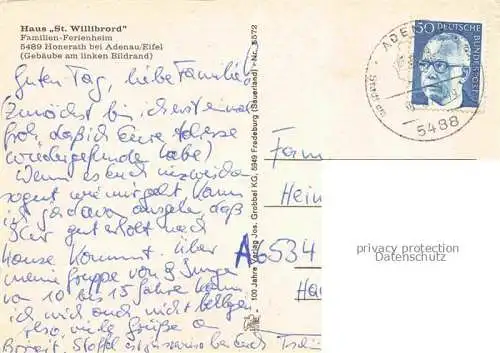 Haus „St. Willibrord"
Familien-Ferienheim
5489 Honerath bei Adenau/Eifel
(Gebäube am linken Bildrand)
Guten Tag, liebe Familie!
Zunächst bin ich erst einmal
froh, daß ich Eure Adresse
wiedergefunden habe!
Wenn es euch
sogut wie mir geht kann
ich ja davon ausgehn, daß
Ihr gut erholt nach
Hause kommt. Über
meine Gruppe von 9 Jungen
von 10 bis 15 Jahre kann
ich mich auch nicht beklagen
Also, viele Grüße an
Birgit, Steffel
100 Jahre Verlag Jos. Grobbel KG, 5949 Fredeburg (Sauerland) - Nr. 5572
50 DEUTSCHE BUNDESPOST
ADENAU
5488
Fam
Hein
534
privacy protection
Datenschutz